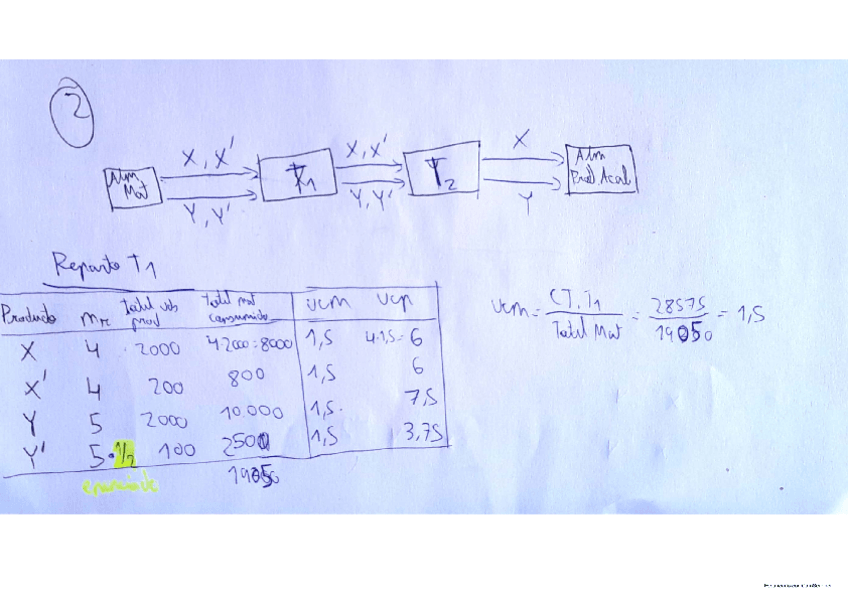 2
X, X'
X, X'
X
Alm Mat
T1
T2
Alm Prod. Acab
Y, Y'
Y, Y'
Y
Reparto T1
Producto mπ Total uds prod Total mat consumido ucm ucp
X 4 2000 4·2000=8000 1,5 4·1,5=6
X' 4 200 800 1,5 6
Y 5 2000 10.000 1,5 7,5
Y' 5·1/2 100 250 1,5 3,75
enunciado
19050
ucm = CT. T1 / Total Mat = 28575 / 19050 = 1,5